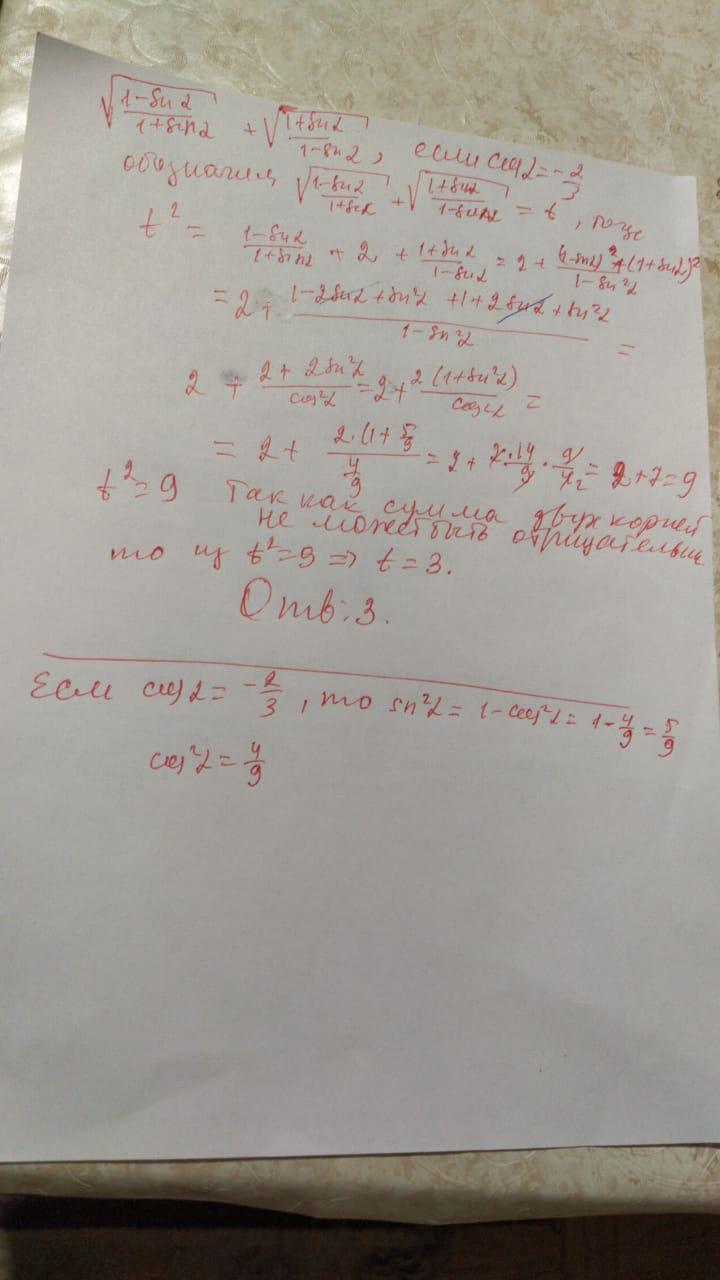 √((1-sin α)/(1+sin α)) + √((1+sin α)/(1-sin α)), если cos α = -2/3
обозначим √((1-sin α)/(1+sin α)) + √((1+sin α)/(1-sin α)) = t, тогда
t² = (1-sin α)/(1+sin α) + 2 + (1+sin α)/(1-sin α) = 2 + ((1-sin α)² + (1+sin α)²)/(1-sin²α)
= 2 + (1-2sin α + sin²α + 1 + 2sin α + sin²α)/(1-sin²α) =
2 + (2+2sin²α)/cos²α = 2 + 2(1+sin²α)/cos²α =
= 2 + (2·(1+5/9))/(4/9) = 2 + 2·14/9 · 9/4₂ = 2+7=9
t²=9 Так как сумма двух корней
не может быть отрицательна
то из t²=9 => t=3.
Отв: 3.
Если cos α = -2/3, то sin²α = 1-cos²α = 1-4/9 = 5/9
cos²α = 4/9